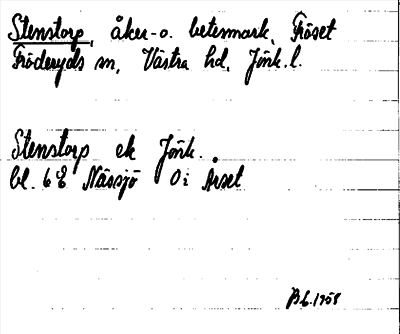 Stenstorp, åker- o. betesmark, Fröset
Fröderyds sn, Västra hd, Jönk. l.
Stenstorp ek Jönk.
bl. 6 E Nässjö 0 i Årset
B.L. 1958